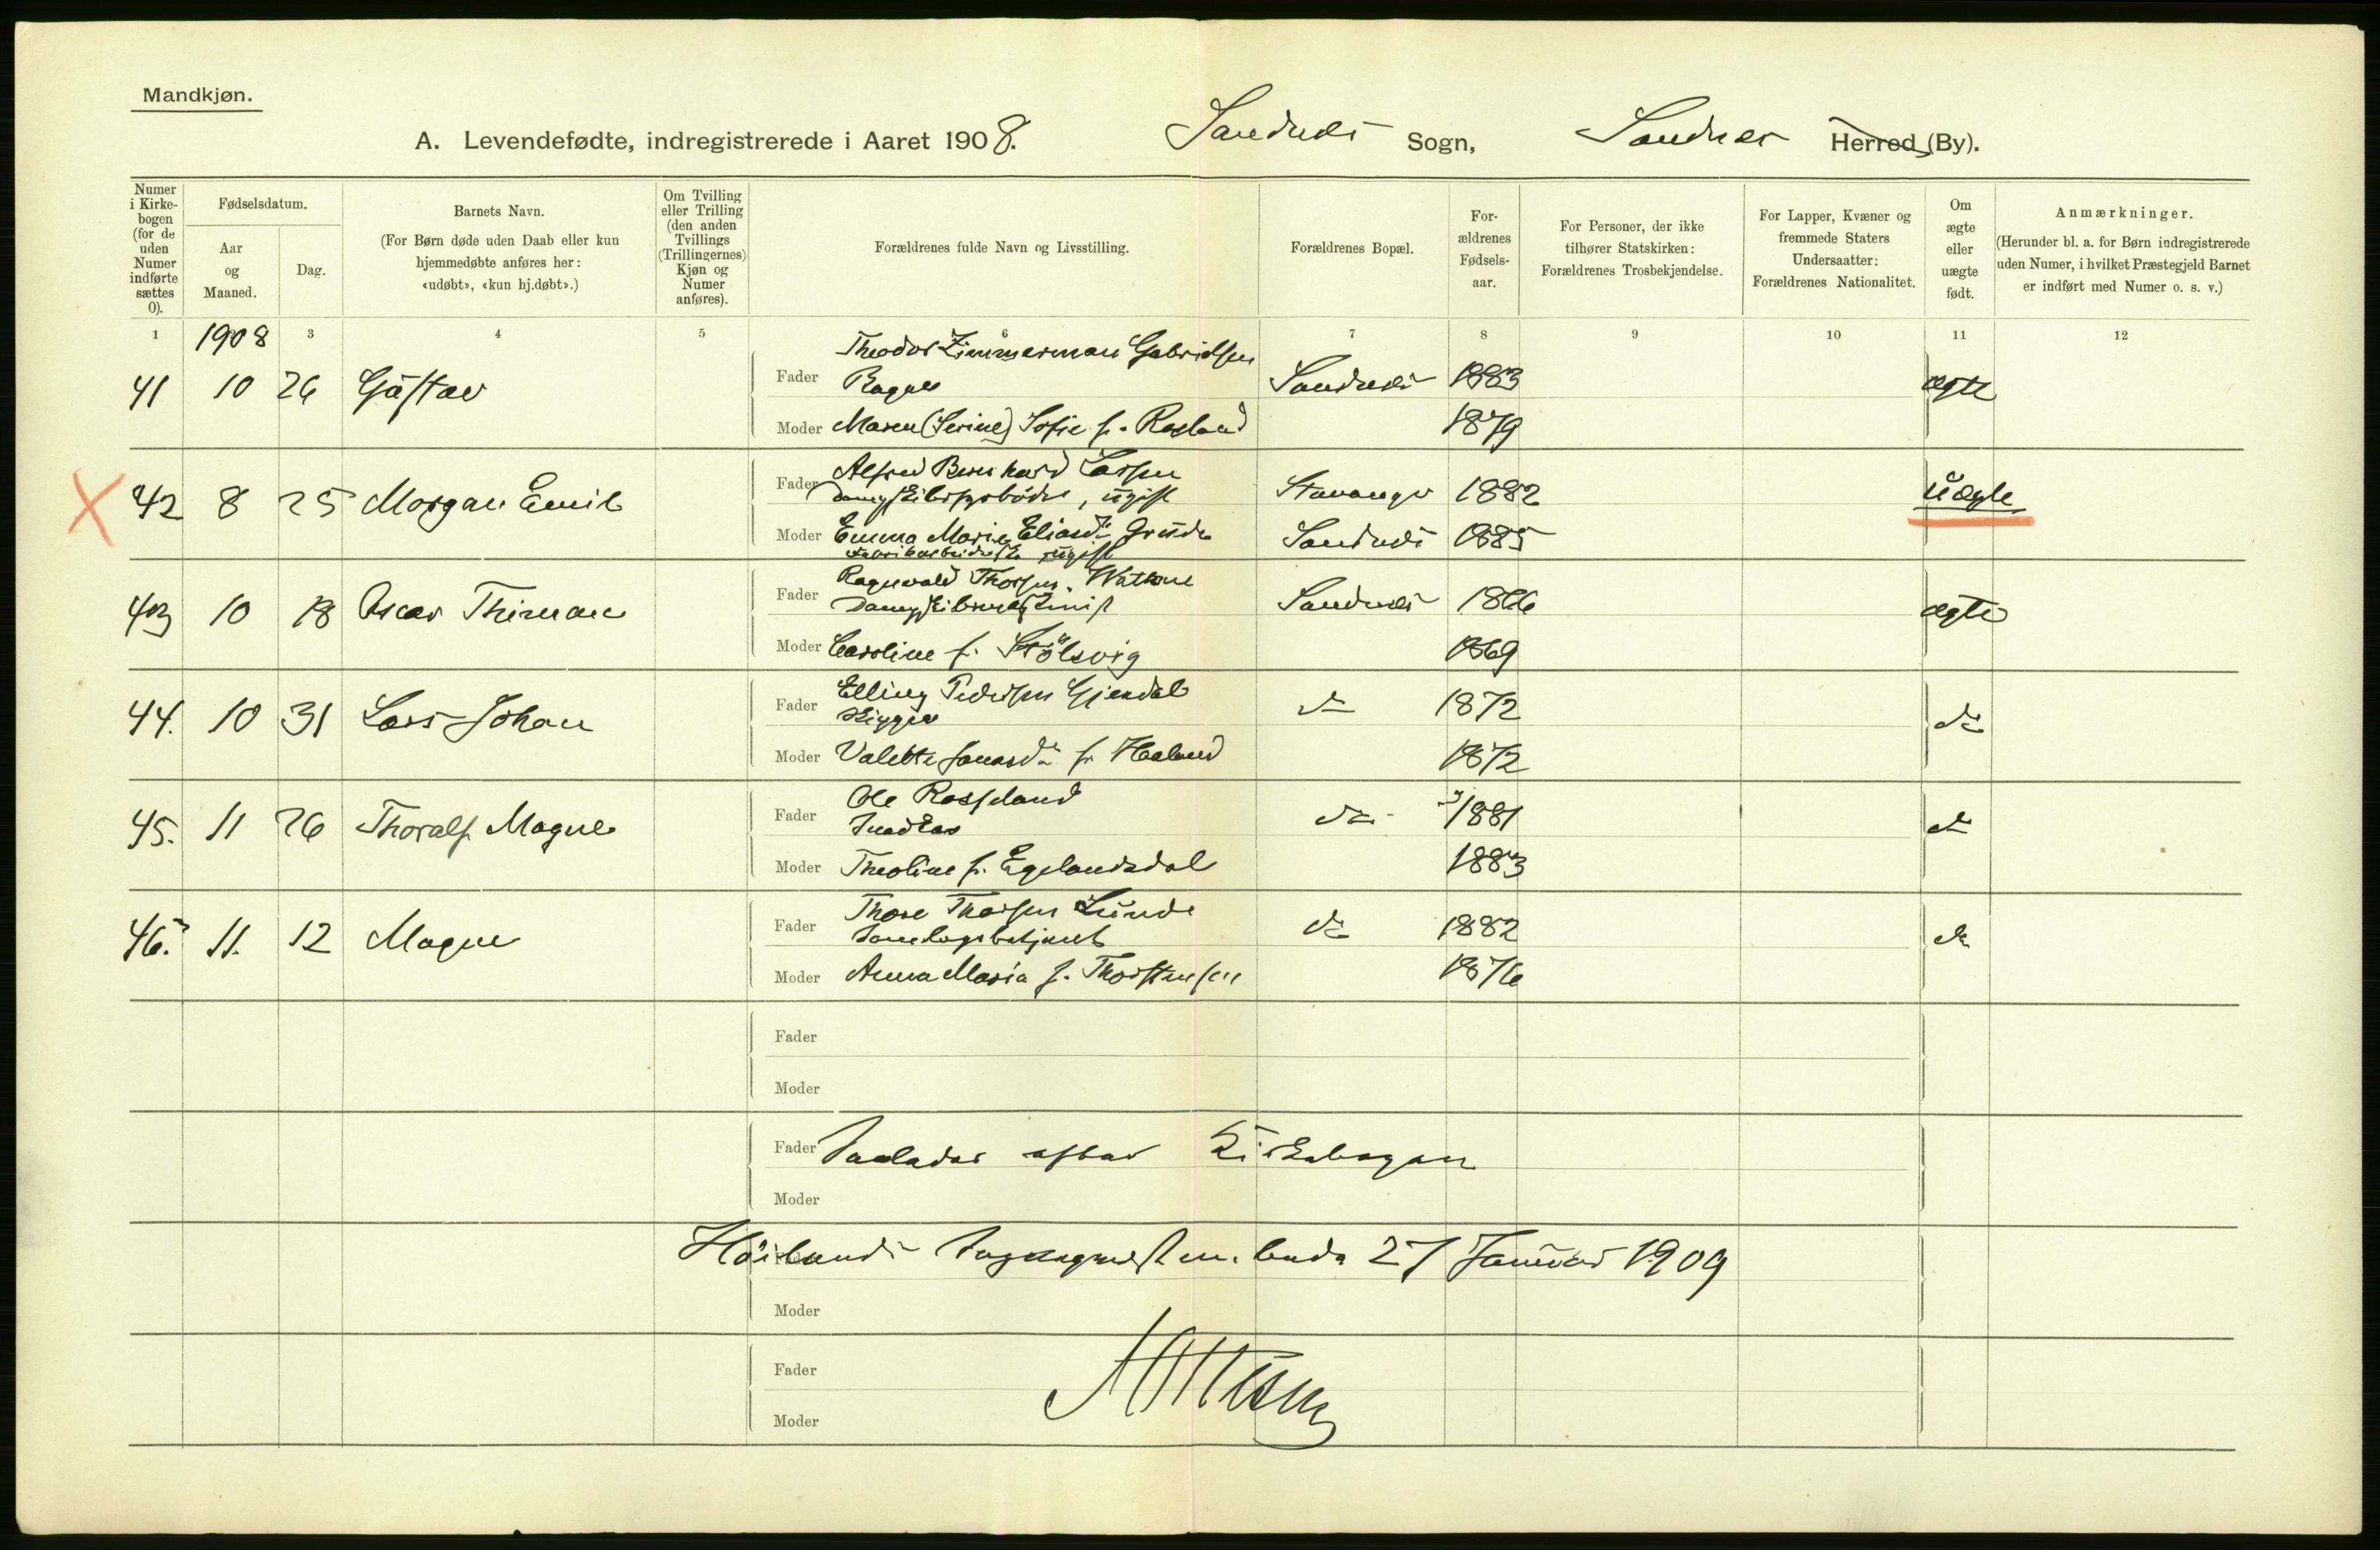 Mandkjøn.
A. Levendefødte, indregistrerede i Aaret 1908. Sandnes Sogn, Sandnes Herred (By).
Numer i Kirke-bogen (for de uden Numer indførte sættes 0).
Fødselsdatum.
Aar og Maaned.
Dag.
Barnets Navn.
(For Børn døde uden Daab eller kun hjemmedøbte anføres her: «udøbt», «kun hj.døbt».)
Om Tvilling eller Trilling (den anden Tvillings (Trillingernes) Kjøn og Numer anføres).
Forældrenes fulde Navn og Livsstilling.
Forældrenes Bopæl.
For-ældrenes Fødsels-aar.
For Personer, der ikke tilhører Statskirken: Forældrenes Trosbekjendelse.
For Lapper, Kvæner og fremmede Staters Undersaatter: Forældrenes Nationalitet.
Om ægte eller uægte født.
Anmærkninger.
(Herunder bl. a. for Børn indregistrerede uden Numer, i hvilket Præstegjeld Barnet er indført med Numer o. s. v.)
1 1908 3 4 5 6 7 8 9 10 11 12
Theodor Zimmerman Gabrielsen
41 10 26 Gustav Fader Bager Sandnes 1883 ægte
Moder Maren (Serine) Sofie f. Rosland 1879
Alfred Bernhard Larsen
X 42 8 25 Morgan Emil Fader ugift Stavanger 1882 uægte
Moder Emma Marie Eliasdr Grude Sandnes 1885
Fabrikarbeiderske ugift
Ragnvald Thorsen Watne
43 10 18 Oscar Thirman Fader Sandnes 1866 ægte
Moder Caroline f. Stölsvig 1869
Elling Pedersen Gjesdal
44. 10 31 Lars Johan Fader Skipper do 1872 do
Moder Valette Jonasdr f. Haaland 1872
Ole Rosseland
45. 11 26 Thoralf Magne Fader Snedker do 1881 do
Moder Theoline f. Egelandsdal 1883
Thore Thorsen Lunde
46. 11. 12 Magne Fader Samlagsbetjent do 1882 do
Moder Anna Maria f. Thorstensen 1876
Fader
Moder
Fader Kirkebogen
Moder
Höilands 27 Januar 1909
Moder
Fader
Moder